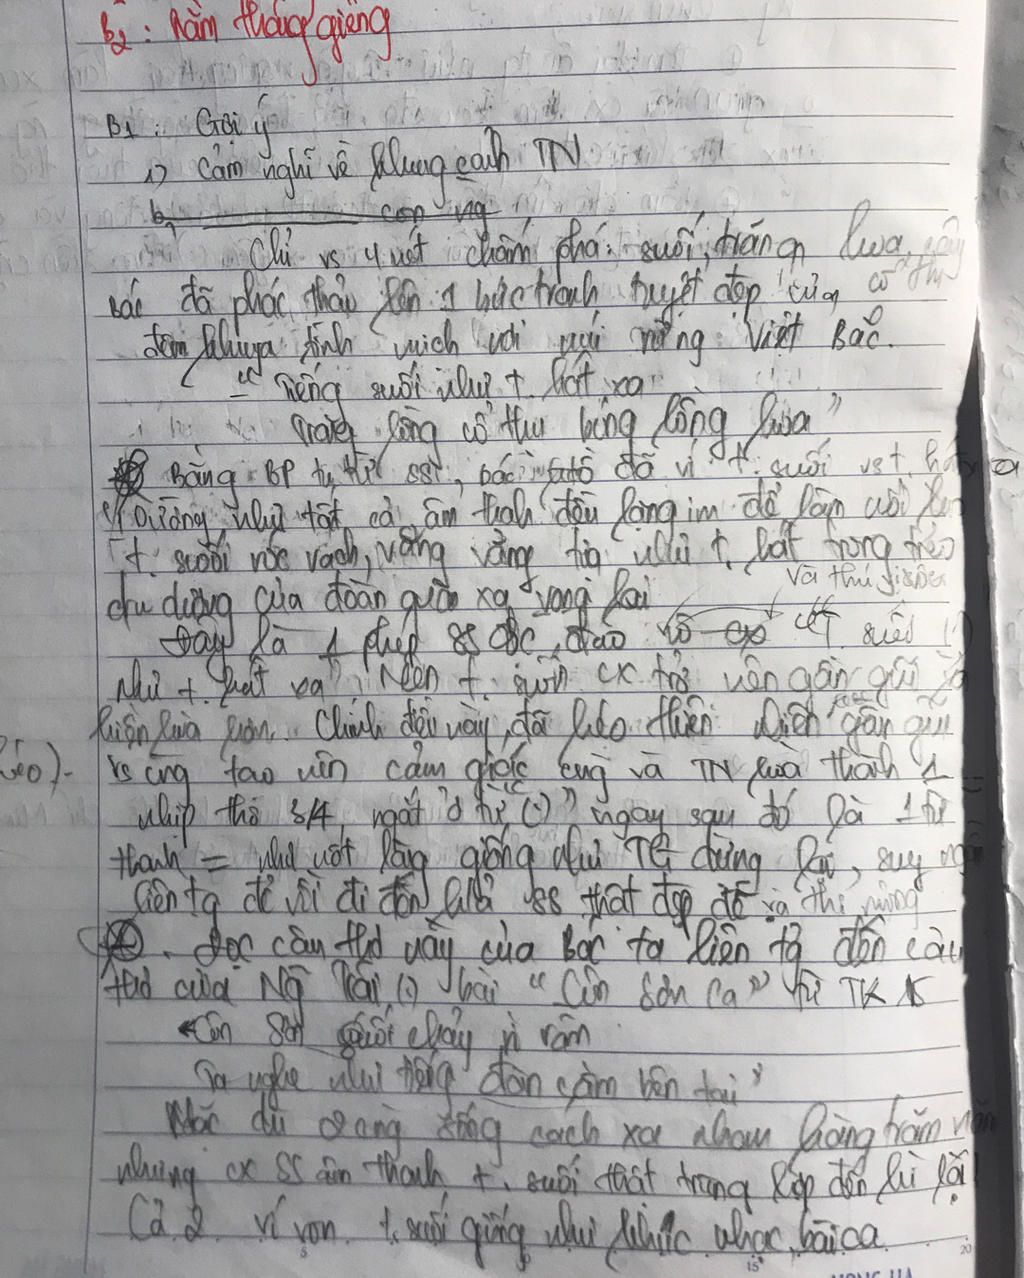 B2: Rằm tháng giêng
B1: Gợi ý
1) Cảm nghĩ về khung cảnh TN
con ng
Chỉ vs 4 nét chấm phá: suối, trăng, hoa, cây
Bác đã phác thảo lên 1 bức tranh tuyệt đẹp của cổ thụ
đêm khuya tĩnh mịch nơi núi rừng Việt Bắc.
"Tiếng suối như t. hát xa
Trăng lồng cổ thụ bóng lồng hoa"
Bằng BP tu từ SS, bác đã ví t. suối vs t. hát xa
Dường như tất cả âm thanh đều lặng im để làm nổi lên
t. suối róc rách, văng vẳng từ như t. hát trong trẻo
và thú
dịu dường của đoàn quân xa vọng lại
Đây là 1 phép SS độc đáo "T. suối
như t. hát xa". Nên t. suối cx trở nên gần gũi và
hiện hơn. Chính điều này đã kéo thiên nhiên gần gũi
vs tạo nên cảm giác và TN hoà thành 1
nhịp thơ 3/4, ngắt ở từ ngay sau đó là 1 từ
thanh = như nốt lặng giống như TG dừng lại, suy ngẫm
liên tg để rồi đi đến SS thật đẹp đẽ và thơ mộng
Đọc câu thơ này của Bác ta liên tg đến câu
thơ của Ng Trãi bài "Côn Sơn Ca" từ TK 15
"Côn Sơn suối chảy rì rầm
Ta nghe như tiếng đàn cầm bên tai"
Mặc dù sống cách xa nhau hàng trăm năm
nhưng cx SS âm thanh t. suối thật trùng lặp đến kì lạ
Cả 2 ví von t. suối giống như khúc nhạc, bài ca